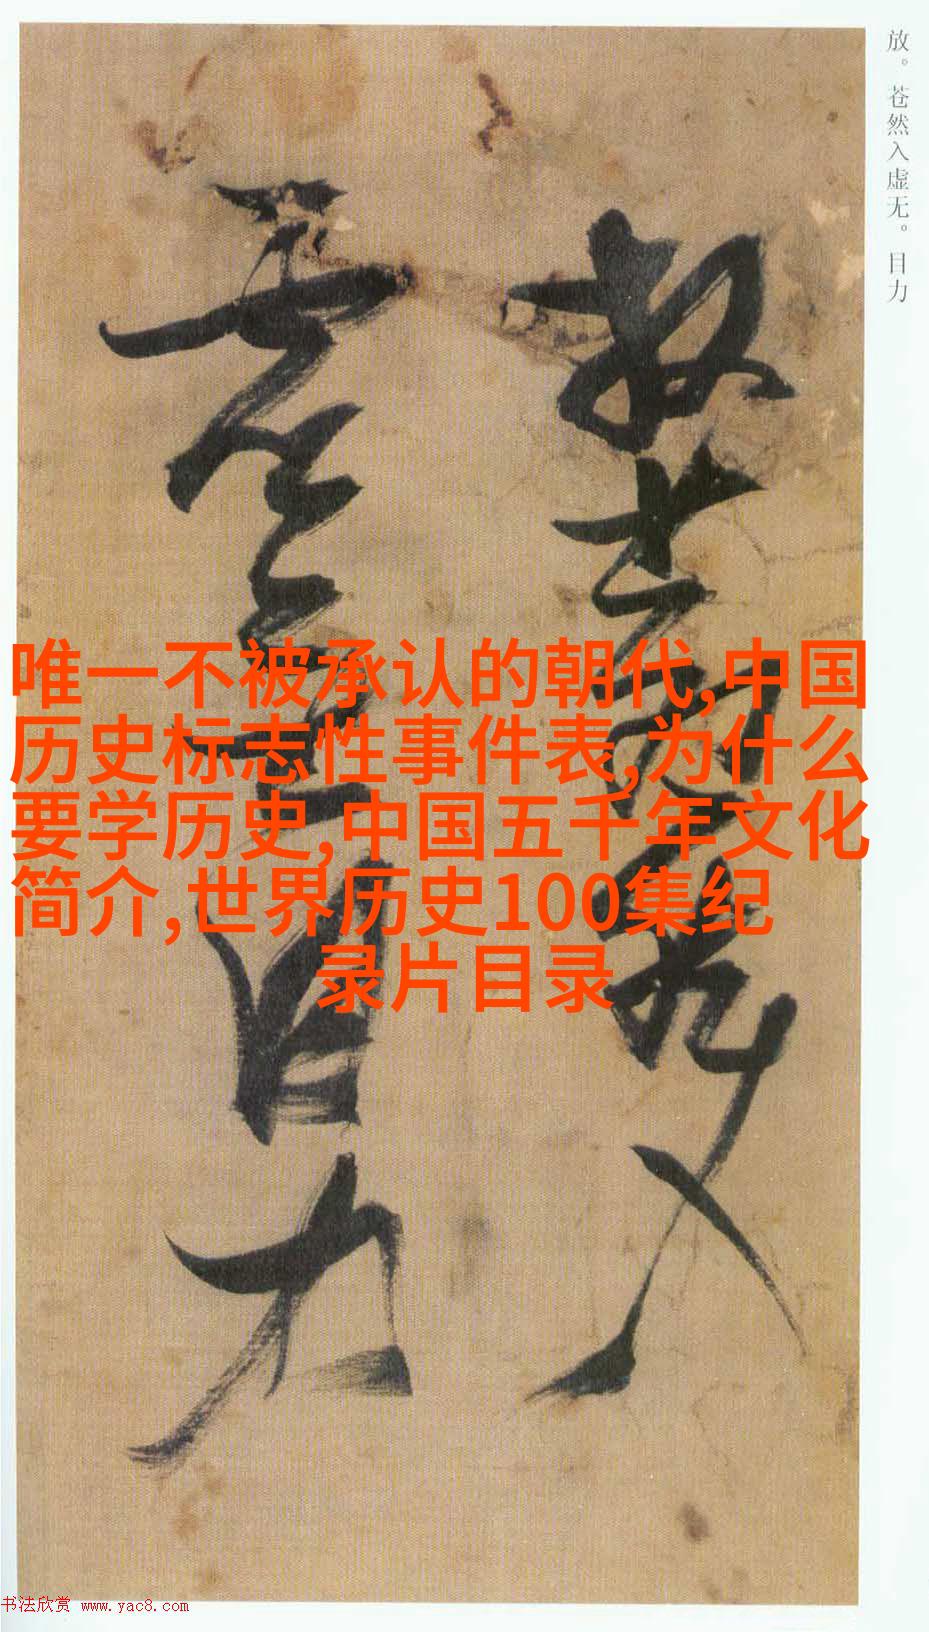 放。苍然入虚无。目力
放苍然入
虚无目力
唯一不被承认的朝代,中国
历史标志性事件表,为什么
要学历史,中国五千年文化
简介,世界历史100集纪
录片目录
书法欣赏 www.yac8.com